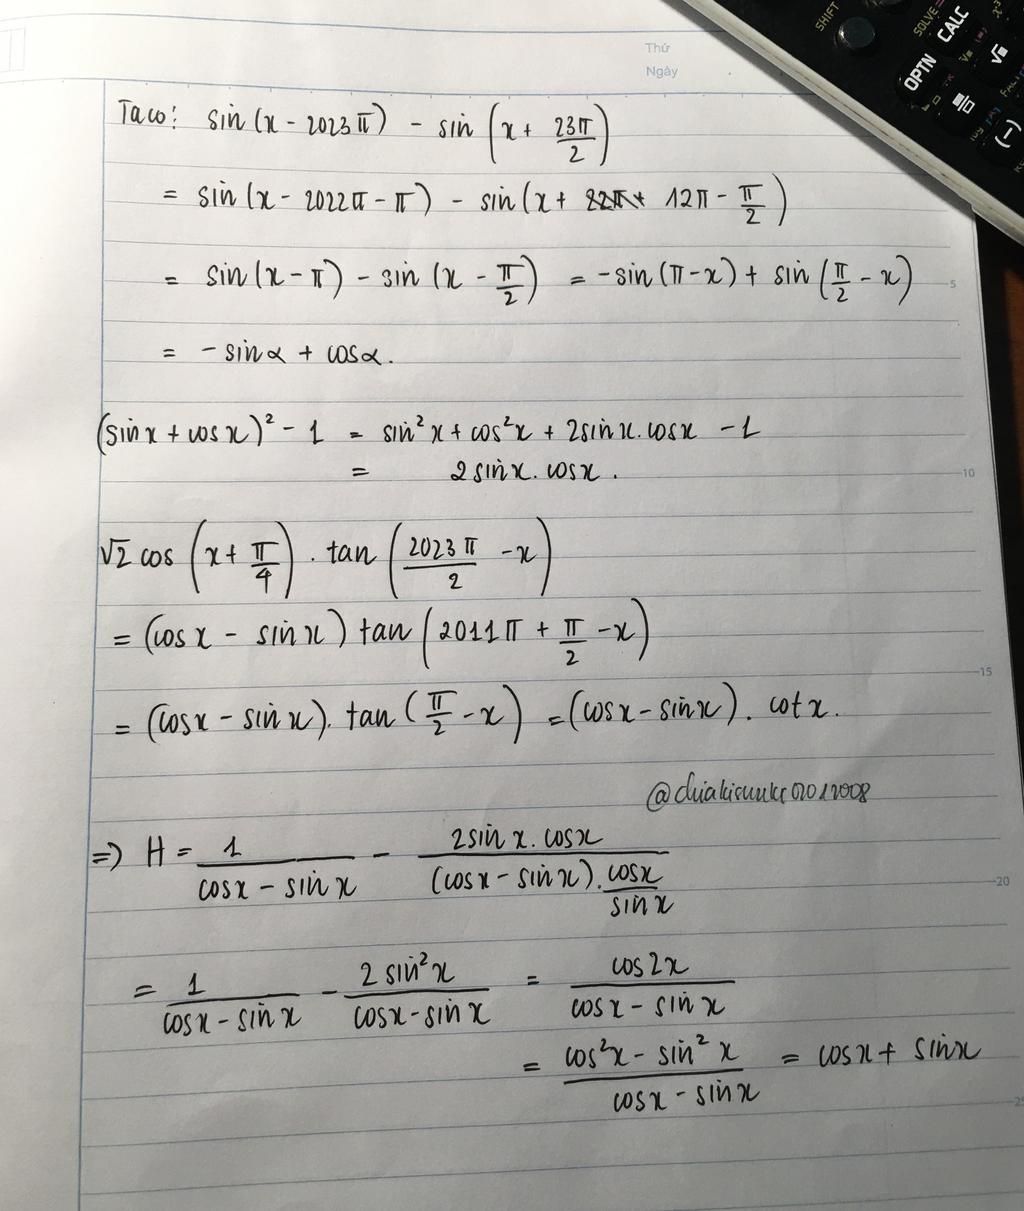 Thứ
Ngày
SHIFT
OPTN
CALC
SOLVE=
Ta có: sin(x - 2023π) - sin(x + 23π/2)
= sin(x - 2022π - π) - sin(x + 12π - π/2)
= sin(x - π) - sin(x - π/2) = -sin(π - x) + sin(π/2 - x)
5
= - sinα + cosα.
(sinx + cosx)² - 1 = sin²x + cos²x + 2sinx.cosx - 1
= 2sinx.cosx.
10
√2 cos(x + π/4) . tan(2023π/2 - x)
= (cosx - sinx) tan(2011π + π/2 - x)
15
= (cosx - sinx). tan(π/2 - x) = (cosx - sinx). cotx.
=> H = 1/(cosx - sinx) - 2sinx.cosx/((cosx - sinx).cosx/sinx)
20
= 1/(cosx - sinx) - 2sin²x/(cosx - sinx) = cos2x/(cosx - sinx)
= (cos²x - sin²x)/(cosx - sinx) = cosx + sinx